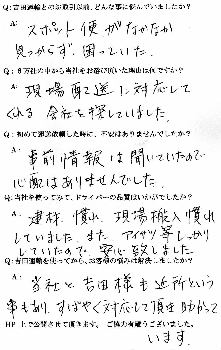 Q:吉田運輸とのお取引以前、どんな事に悩んでいましたか?
A: スポット便がなかなか
見つからず、困っていた。
Q:8万社の中から当社をお選び頂いた理由は何ですか?
A: 現場配送に対応して
くれる会社を探していました。
Q:初めて運送依頼した時に、不安はありませんでしたか?
A: 事前情報は聞いていたので
心配はありませんでした。
Q:当社を使ってみて、ドライバーの品質はいかがでしたか?
A: 建材慣れ、現場搬入慣れ
していました。また、アイサツ等しっかり
していたので、安心致しました。
Q:吉田運輸を使ってから、お客様の悩みは解決しましたか?
A: 当社と吉田様も近所という
事もあり、すばやく対応して頂き助かって
HP上で公開させて頂きます。ご協力有難うございました。
います。